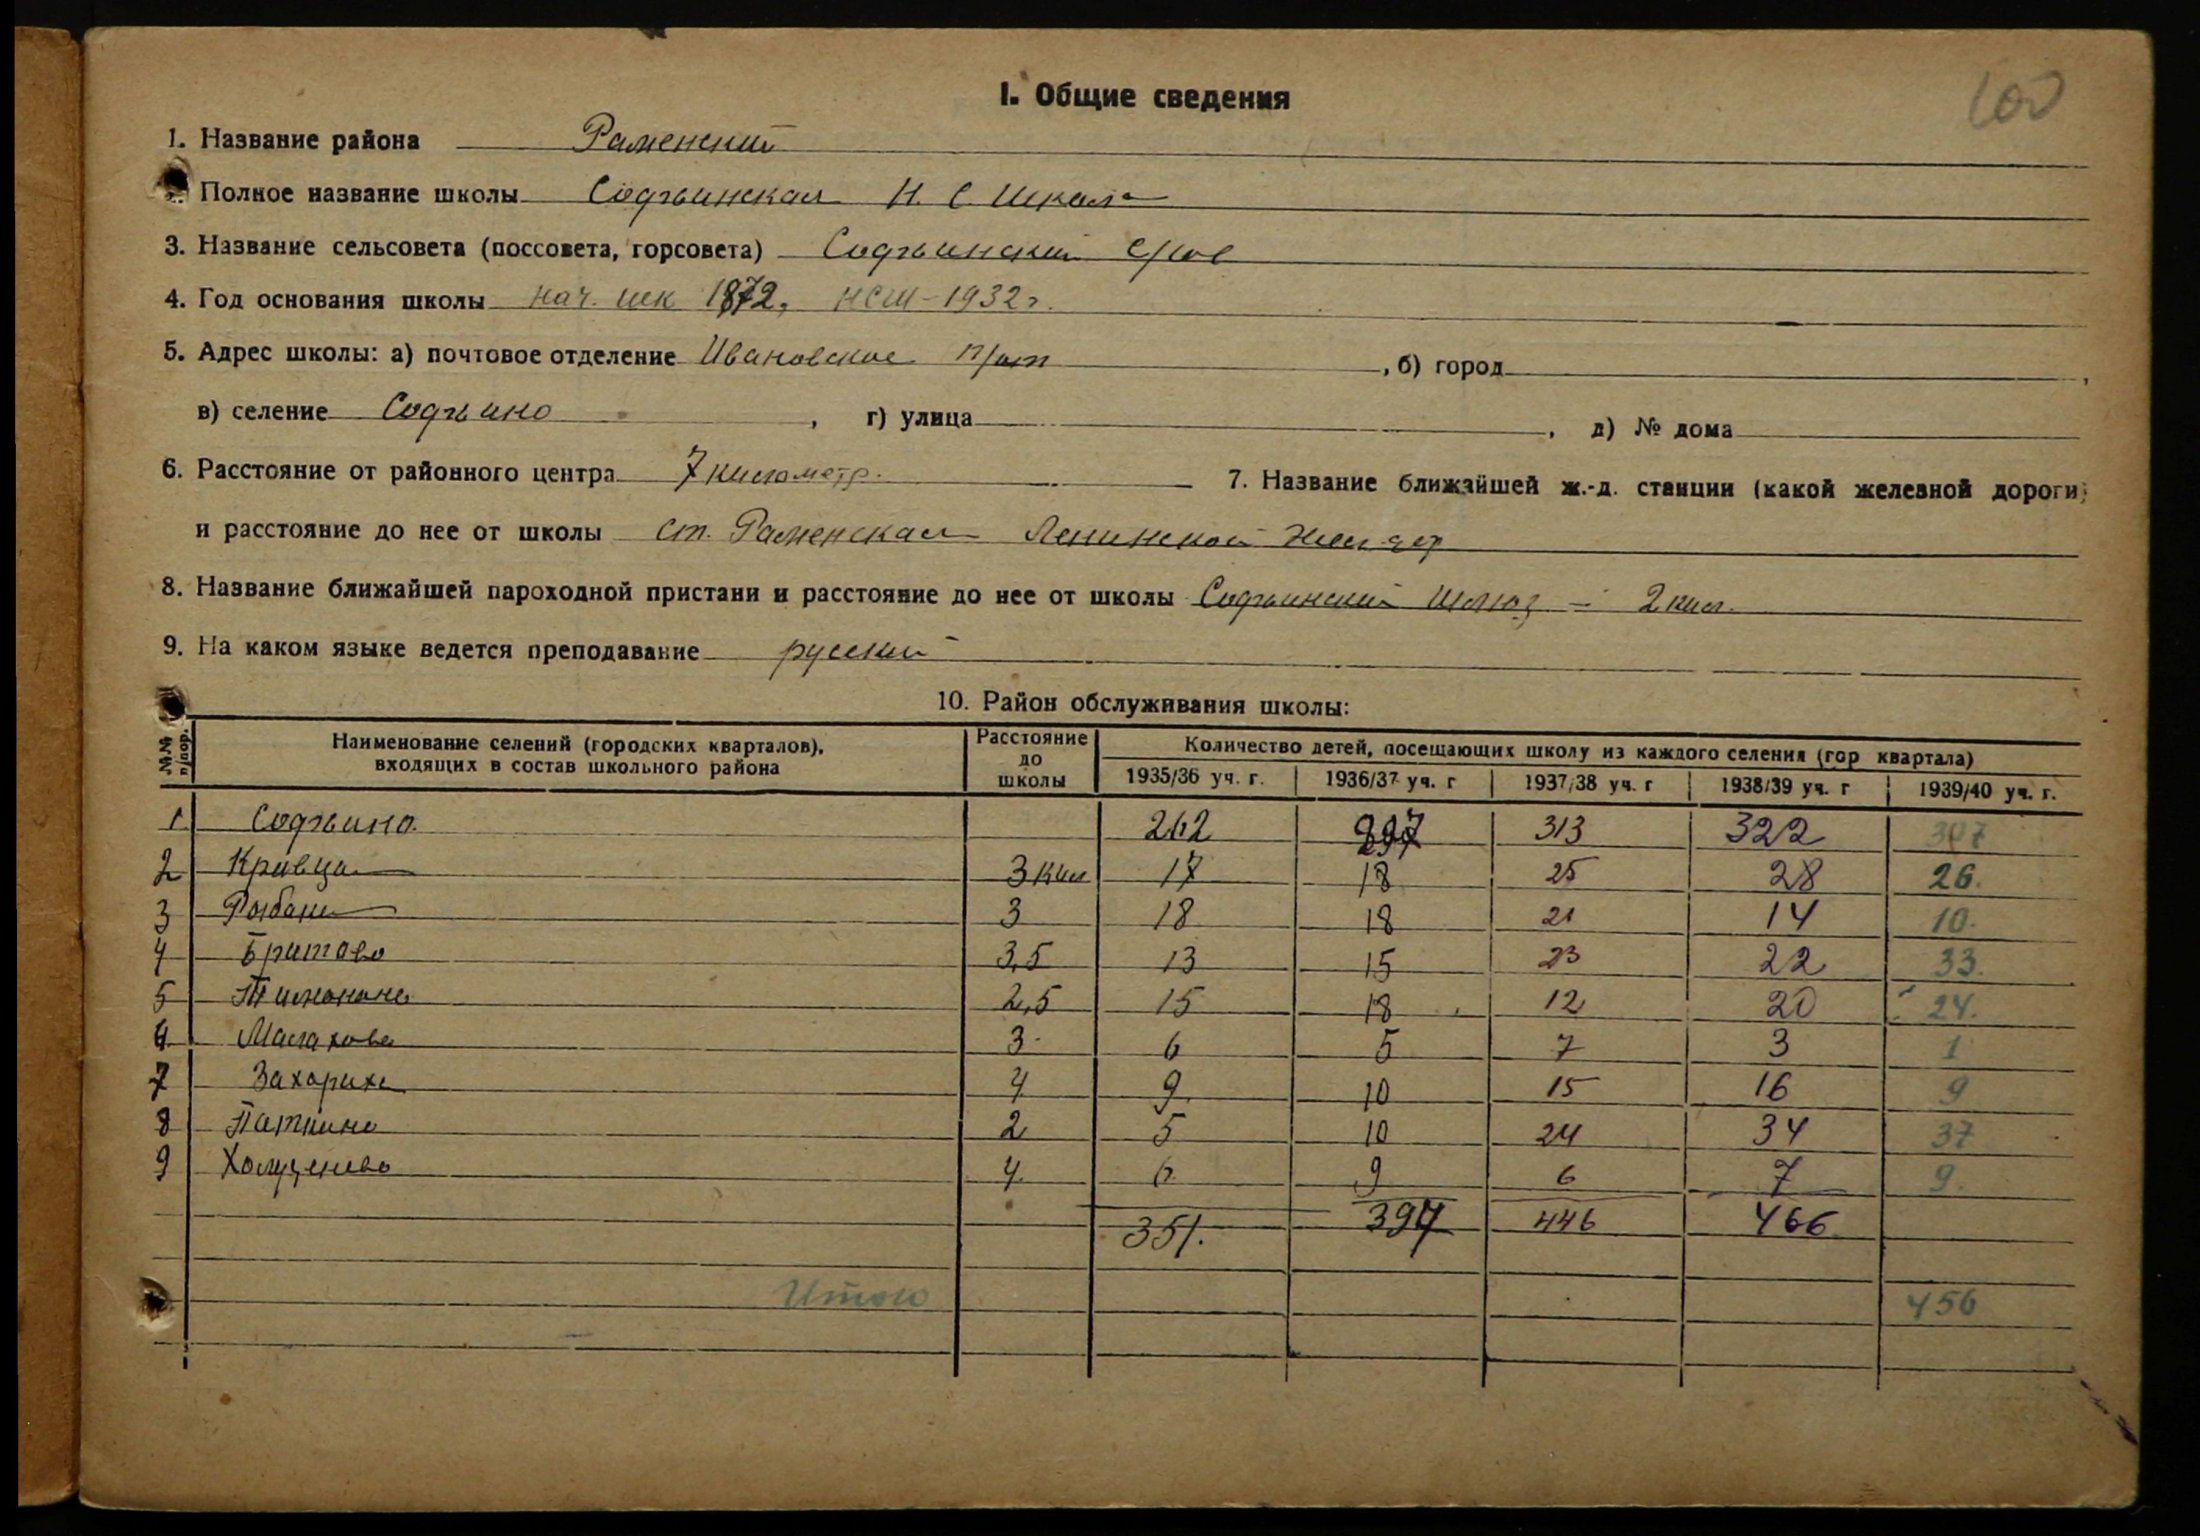 100
I. Общие сведения
1. Название района Раменский
Полное название школы Софьинская Н. С. Школа
3. Название сельсовета (поссовета, горсовета) Софьинский с/сов
4. Год основания школы нач. шк 1872, НСШ-1932 г.
5. Адрес школы: а) почтовое отделение Ивановское п/от , б) город ,
в) селение Софьино , г) улица , д) № дома
6. Расстояние от районного центра 7 километр. 7. Название ближайшей ж.-д. станции (какой железной дороги)
и расстояние до нее от школы ст. Раменская Ленинской жел дор
8. Название ближайшей пароходной пристани и расстояние до нее от школы Софьинский Шлюз - 2 кил.
9. На каком языке ведется преподавание русский
10. Район обслуживания школы:
№№ п/пор. Наименование селений (городских кварталов), входящих в состав школьного района Расстояние до школы Количество детей, посещающих школу из каждого селения (гор квартала)
1935/36 уч. г. 1936/37 уч. г 1937/38 уч. г 1938/39 уч. г 1939/40 уч. г.
1 Софьино 262 297 313 322 307
2 Кривцы 3 кил 17 18 25 28 26.
3 Рыбаки 3 18 18 21 14 10.
4 Бритово 3,5 13 15 23 22 33.
5 Тимонино 2,5 15 18 12 20 24.
Малахово 3 6 5 7 3 1
7 Захариха 4 9 10 15 16 9
8 Паткино 2 5 10 24 34 37
9 Холуденево 4 6 9 6 7 9.
351. 446 466
Итого 456